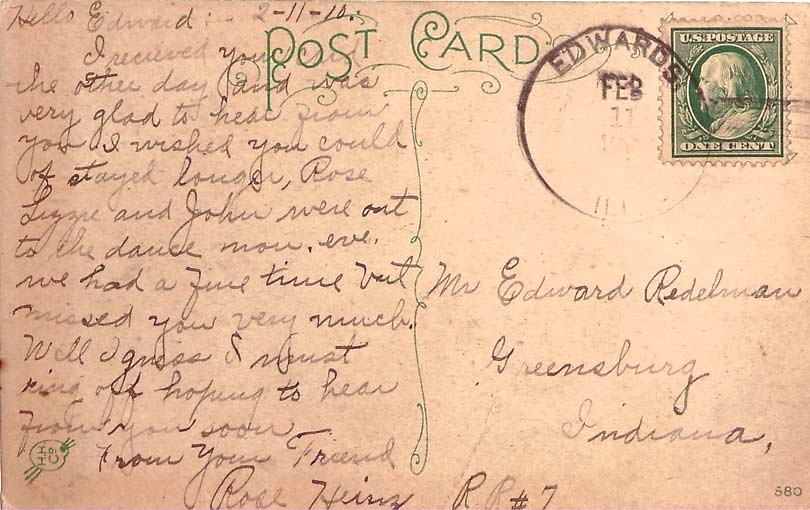 Hello Edward:- 2-11-10.
POST CARD
I recieved your card
the other day and was
very glad to hear from
you I wished you could
of stayed longer, Rose
Lizzie and John were out
to the dance mon. eve.
we had a fine time but
missed you very much.
Well I guess I must
ring off hoping to hear
from you soon
From Your Friend
Rose Heinz
EDWARDS
FEB
11
ILL
U.S. POSTAGE
ONE CENT
Mr Edward Redelman
Greensburg
Indiana,
R.R#7
HH
Co
580